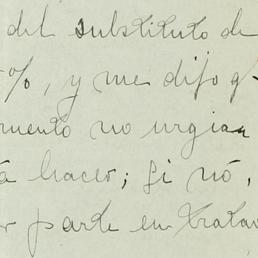 del substituto de
%, y me dijo q
mento no urgian
á hacer; si nó,
r parte en tratar